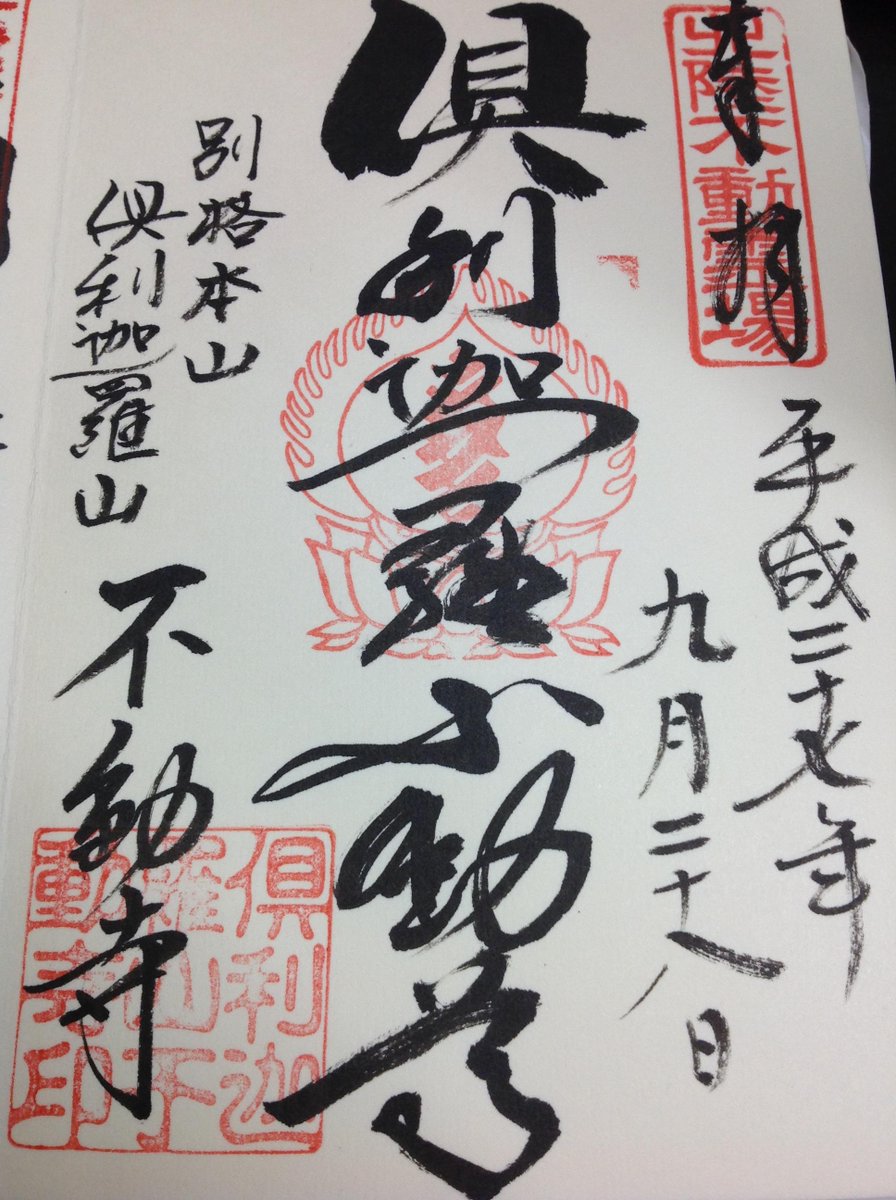 奉拝
北陸不動霊場
平成二十七年
九月二十八日
倶利迦羅不動尊
別格本山
倶利迦羅山
不動寺
倶利迦
羅山不
動寺印